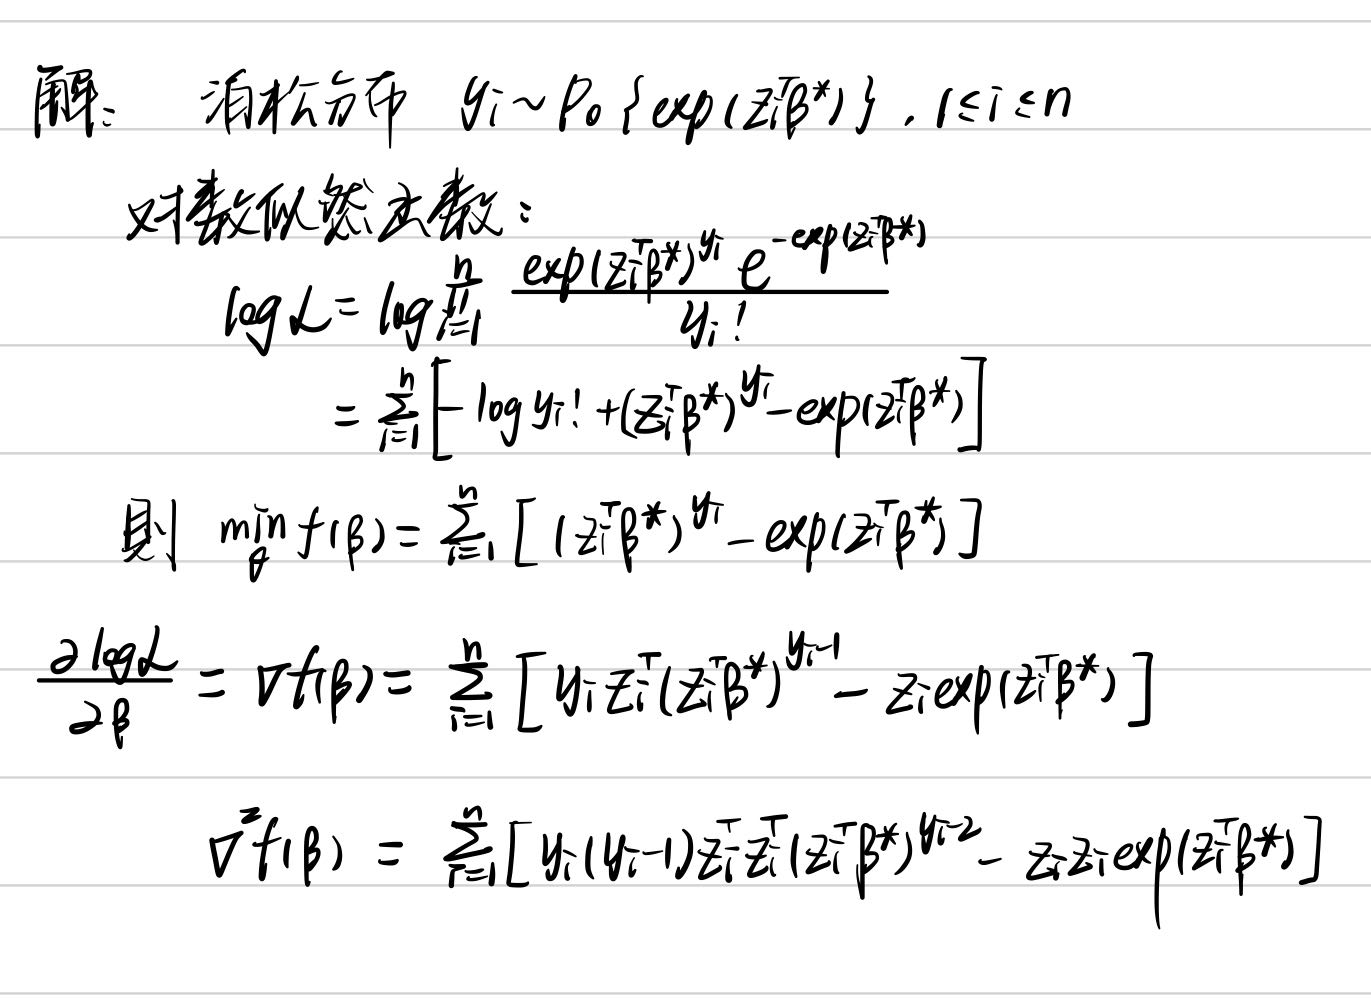 解: 泊松分布 y_i ~ Po{exp(z_i^Tβ*)}, 1≤i≤n
对数似然函数:
log L = log ∏_{i=1}^{n} \frac{exp(z_i^Tβ*)^{y_i} e^{-exp(z_i^Tβ*)}}{y_i!}
= ∑_{i=1}^{n} [- log y_i! + (z_i^Tβ*)^{y_i} - exp(z_i^Tβ*)]
则 min_θ f(β) = ∑_{i=1}^{n} [(z_i^Tβ*)^{y_i} - exp(z_i^Tβ*)]
\frac{∂ log L}{∂β} = ∇f(β) = ∑_{i=1}^{n} [y_i z_i^T (z_i^Tβ*)^{y_i-1} - z_i exp(z_i^Tβ*)]
∇²f(β) = ∑_{i=1}^{n} [y_i(y_i-1) z_i^T z_i^T (z_i^Tβ*)^{y_i-2} - z_i z_i exp(z_i^Tβ*)]